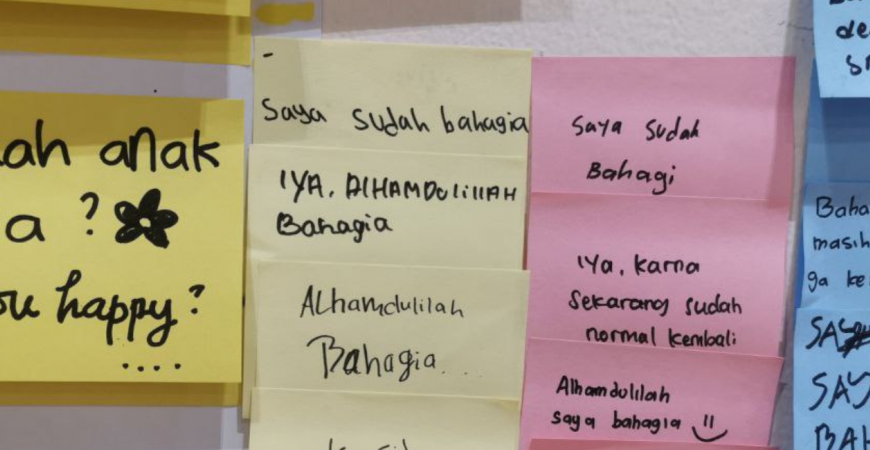 anak
a ?
happy?
....
Saya sudah bahagia
IYA. ALHAMDULILLAH
Bahagia
Alhamdulilah
Bahagia...
Saya sudah
Bahagi
Iya, karna
sekarang sudah
normal kembali
Alhamdulilah
saya bahagia
masih